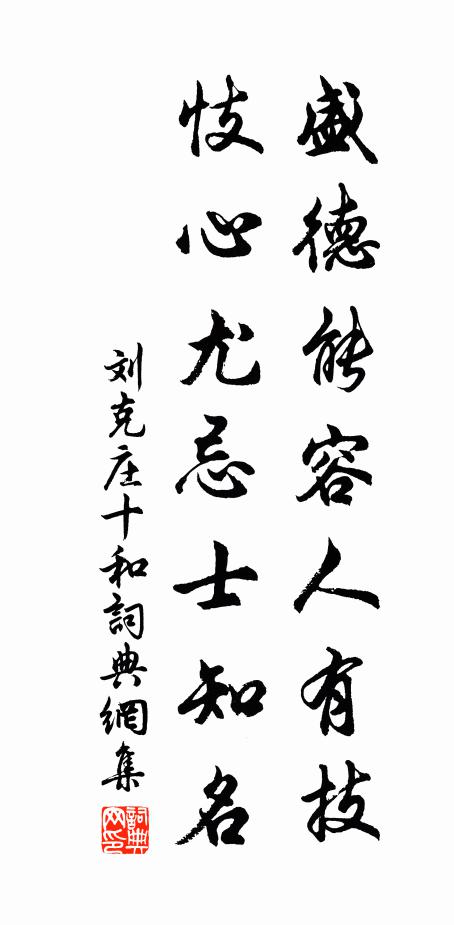 盛德能容人有技
忮心尤忌士知名
刘克庄十和詞典網集
詞典
网印